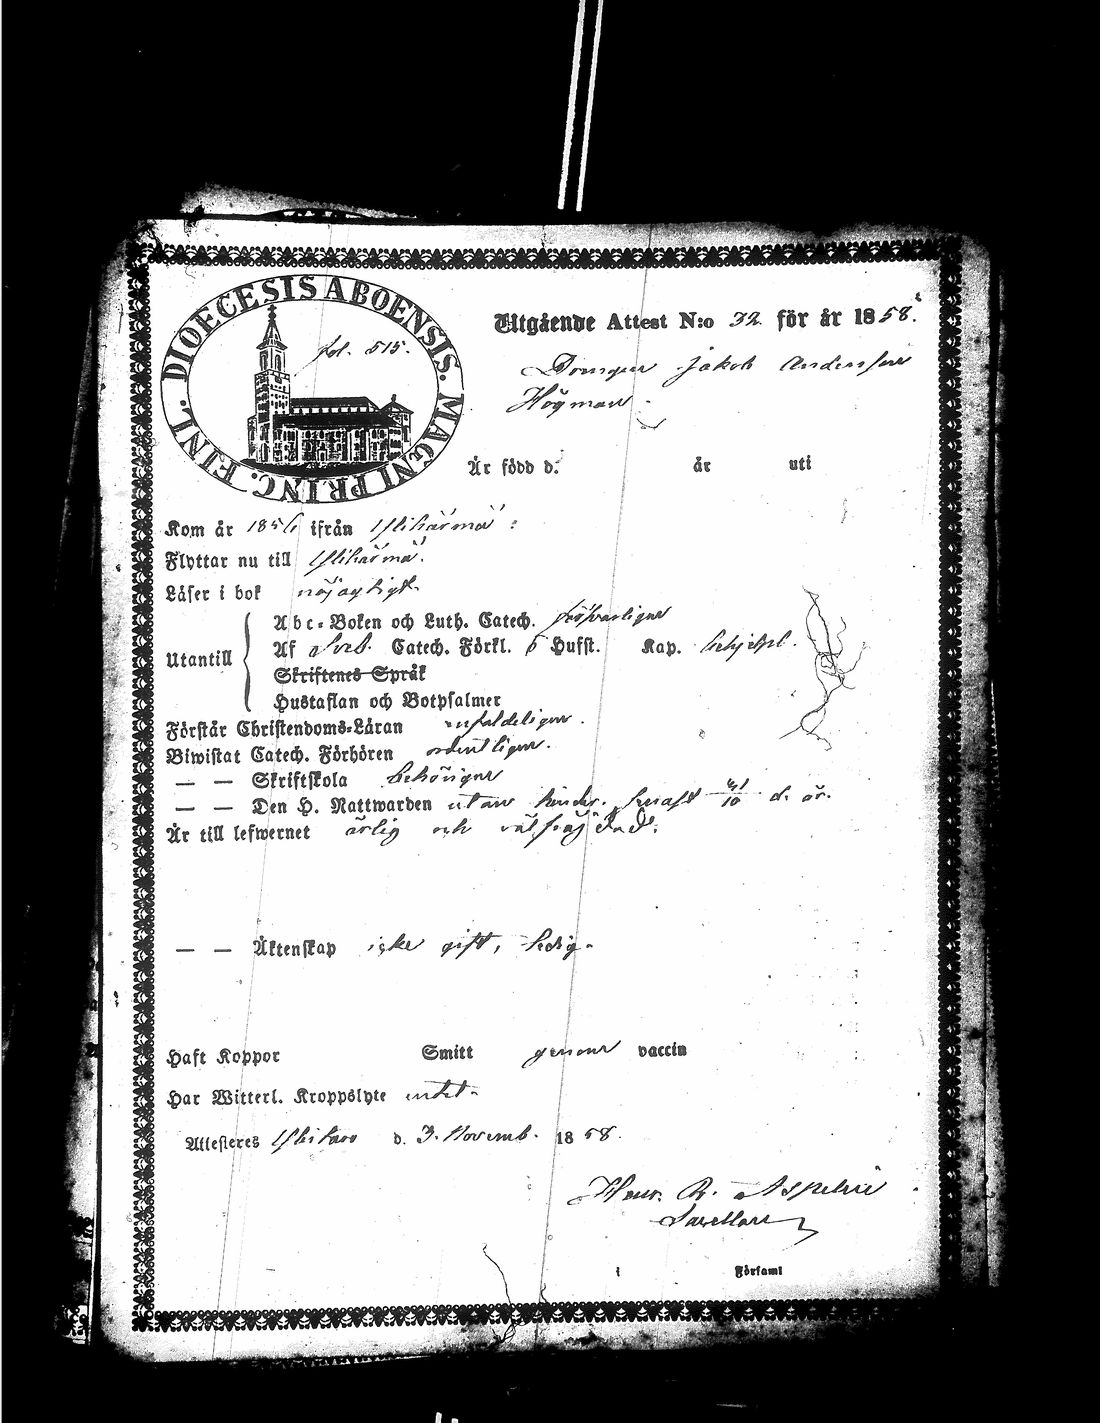 DIOECESIS ABOENSIS. MAGNI PRINC. FINL.
fol. 515.
Utgående Attest N:o 32 för år 1858.
Drängen Jakob Andersson
Högman.
Är född d. år uti
Kom år 1856 ifrån Ylihärmä
Flyttar nu till Ylihärmä.
Läser i bok nöjagtigt
Utantill
Abc-Boken och Luth. Catech. försvarligen
Af Sveb. Catech. Förkl. 5 Hufst. Kap. behjelpl.
Skriftenes Språk
Hustaflan och Botpsalmer
Förstår Christendoms-Läran enfaldeligen.
Biwistat Catech. Förhören ordentligen.
— — Skriftskola behörigen
— — Den H. Nattwarden utan hinder. senast /10 d. år.
Är till lefwernet ärlig och välfräjdad.
— — Äktenskap icke gift, ledig.
Haft Koppor Smitt genom vaccin
Har Witterl. Kroppslyte intet.
Attesteres d. 3. Novemb. 1858.
Henr. R. Aspelin
i Församl